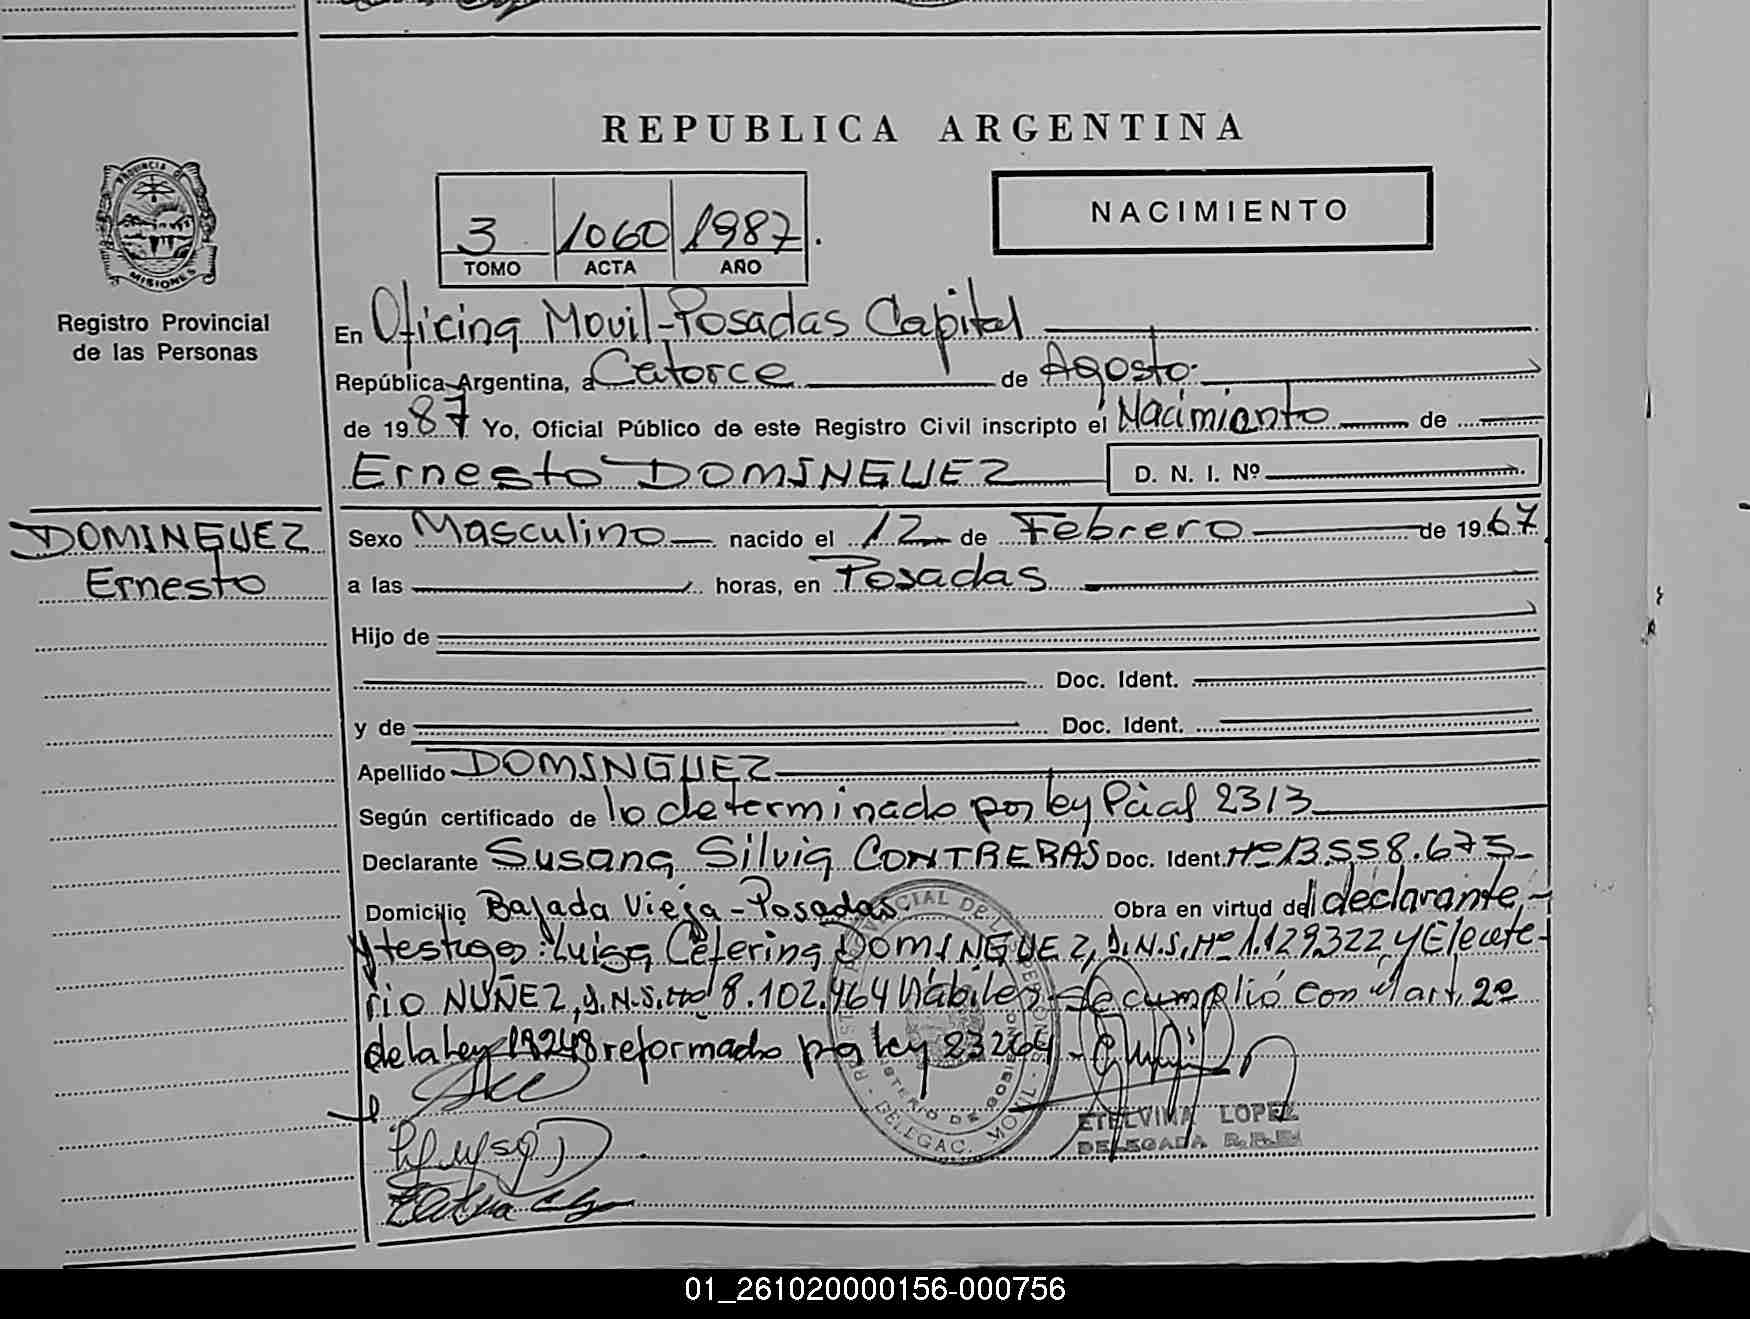 REPUBLICA ARGENTINA
PROVINCIA DE
MISIONES
Registro Provincial
de las Personas
3 1060 1987.
TOMO ACTA AÑO
NACIMIENTO
En Oficina Movil-Posadas Capital
República Argentina, a Catorce de Agosto.
de 1987 Yo, Oficial Público de este Registro Civil inscripto el Nacimiento de
Ernesto DOMINGUEZ D. N. I. Nº
DOMINGUEZ
Ernesto
Sexo Masculino nacido el 12 de Febrero de 1967
a las horas, en Posadas
Hijo de
Doc. Ident.
y de Doc. Ident.
Apellido DOMINGUEZ
Según certificado de lo determinado por ley Pcial 2313
Declarante Susana Silvia CONTRERAS Doc. Ident. Nº 13.558.675-
Domicilio Bajada Vieja - Posadas Obra en virtud del declarante,-
y testigos: Luisa Ceferina DOMINGUEZ, D.N.I. Nº 1.129322 y Eleute-
rio NUÑEZ, D.N.I. Nº 8.102.464 Hábiles- Se cumplió con el art. 2º
de la Ley 18248 reformado por ley 23264-
ETELVINA LOPEZ
DELEGADA
DELEGAC. MOVIL
MINISTERIO DE GOBIERNO
01_261020000156-000756